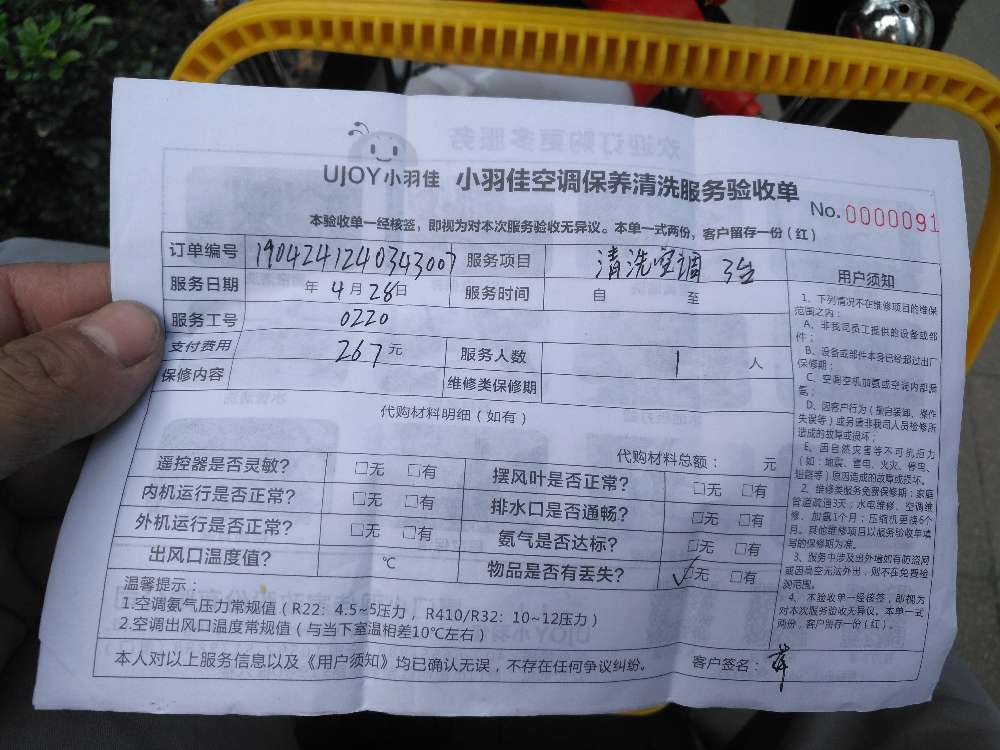 欢迎订购更多服务
UJOY小羽佳 小羽佳空调保养清洗服务验收单
No. 0000091
本验收单一经核签，即视为对本次服务验收无异议。本单一式两份，客户留存一份（红）
订单编号 1904241240343007 服务项目 清洗空调 3台
服务日期 年 4 月 28 日 服务时间 自 至
服务工号 0220
支付费用 267 元 服务人数 1 人
保修内容 维修类保修期
代购材料明细（如有）
代购材料总额： 元
遥控器是否灵敏？ □无 □有 摆风叶是否正常？ □无 □有
内机运行是否正常？ □无 □有 排水口是否通畅？ □无 □有
外机运行是否正常？ □无 □有 氨气是否达标？ □无 □有
出风口温度值？ ℃ 物品是否有丢失？ ✓□无 □有
温馨提示：
1.空调氨气压力常规值（R22：4.5~5压力，R410/R32：10~12压力）
2.空调出风口温度常规值（与当下室温相差10℃左右）
本人对以上服务信息以及《用户须知》均已确认无误，不存在任何争议纠纷。 客户签名：
用户须知
1、下列情况不在维修项目的维保
范围之内：
A、非我司员工提供的设备或部
件；
B、设备或部件本身已经超过出厂
保修期；
C、空调空机加氨或空调内部漏
氨；
D、因客户行为（擅自装卸、操作
失误等）或另请非我司人员检修所
造成的故障或损坏；
E、因自然灾害等不可抗拒力
（如：地震、雷电、火灾、停电、
短路等）原因造成的故障或损坏。
2、维修类服务免费保修期：家庭
管道疏通3天；水电维修、空调维
修、加氨1个月；压缩机更换6个
月。其他维修项目以服务验收单填
写的保修期为准。
3、服务中涉及出外墙如有防盗网
或因高空无法外出，则不在免费检
测范围。
4、本验收单一经核签，即视为
对本次服务验收无异议。本单一式
两份，客户留存一份（红）。